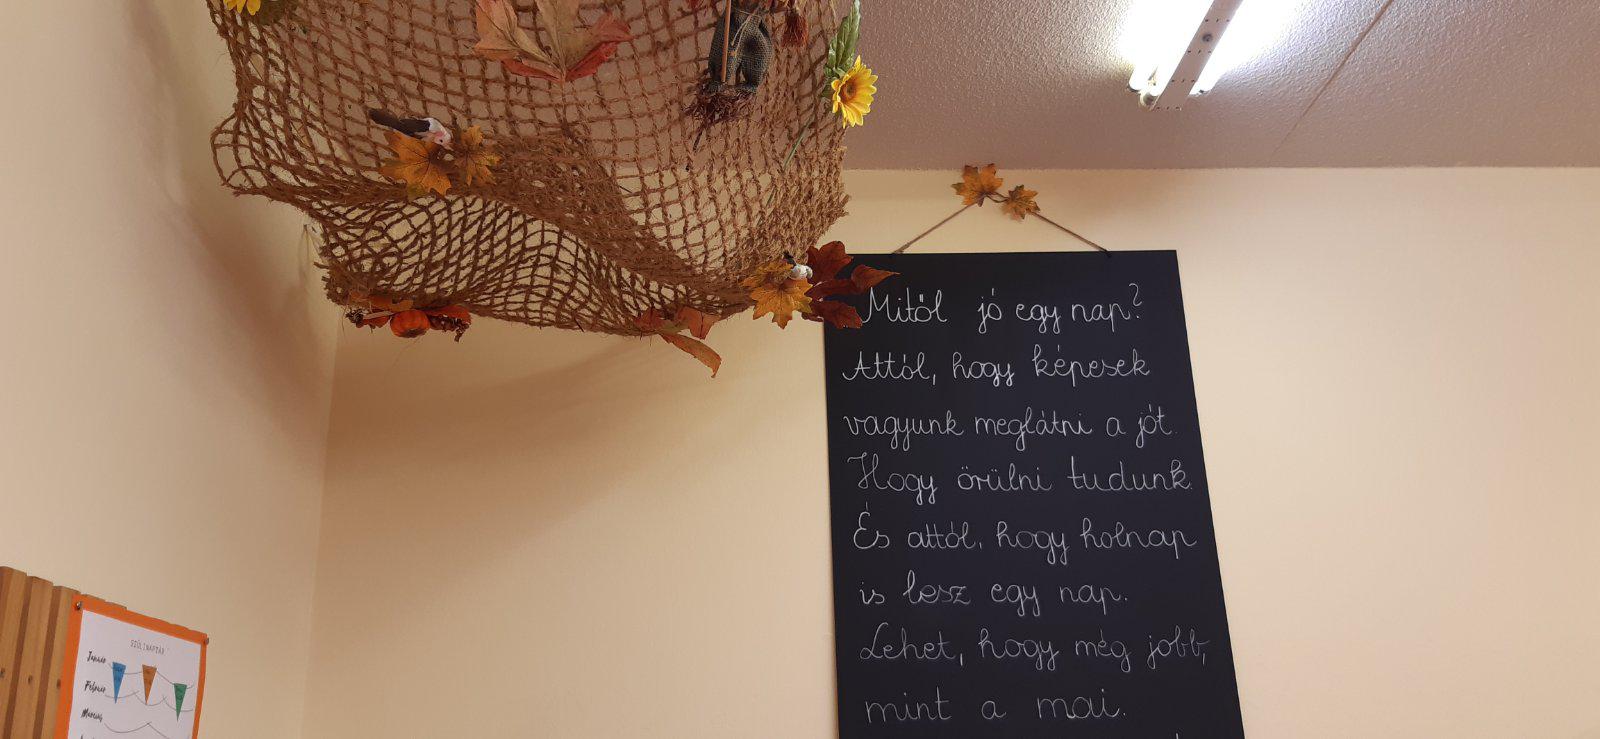 Mitől jó egy nap?
Attól, hogy képesek
vagyunk meglátni a jót.
Hogy örülni tudunk.
És attól, hogy holnap
is lesz egy nap.
Lehet, hogy még jobb,
mint a mai.
SZÜLINAPTÁR
Január
Február
Március